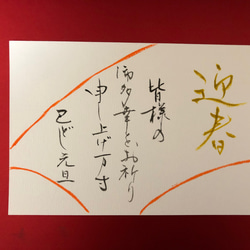 迎春
皆様の
御多幸をお祈り
申し上げます
巳どし元旦